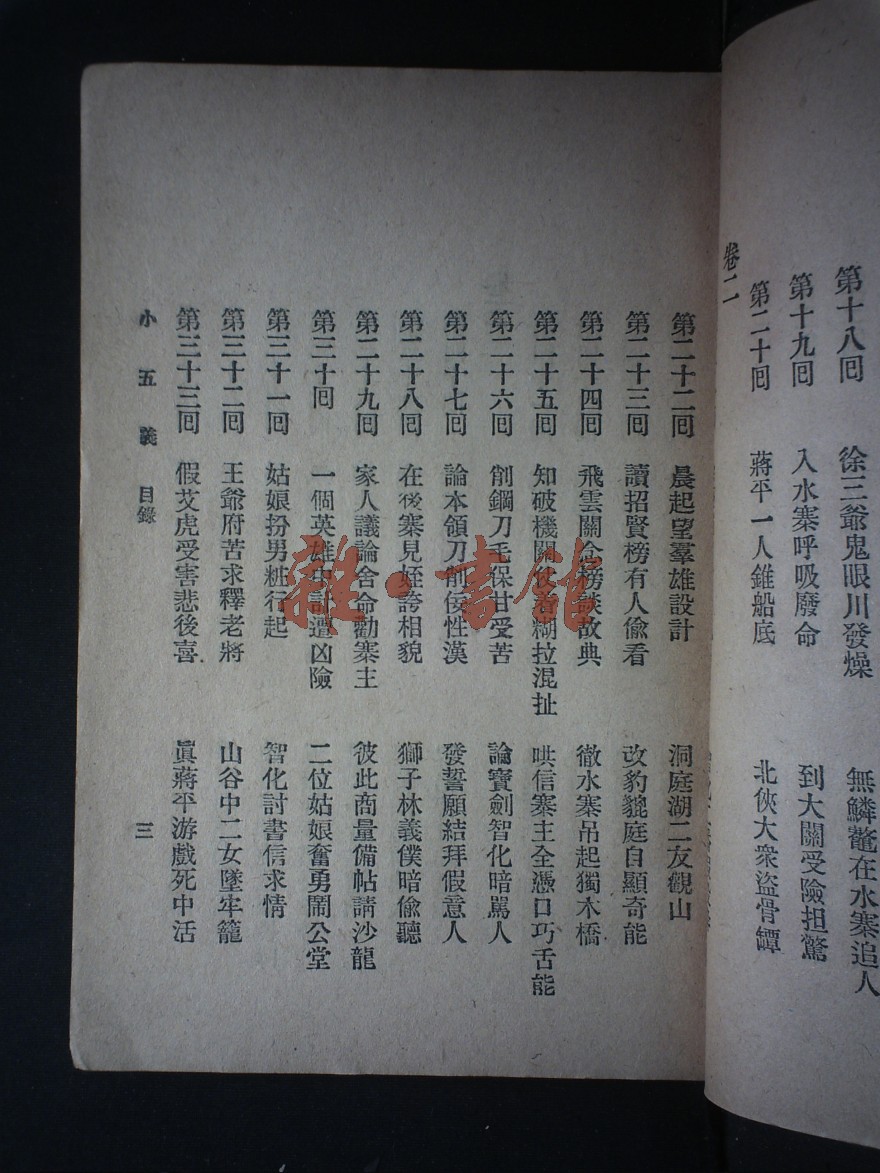 第十八回 徐三爺鬼眼川發燥 無鱗鼇在水寨追人
第十九回 入水寨呼吸廢命 到大關受險担驚
第二十回 蔣平一人錐船底 北俠大衆盜骨罈
卷二
第二十二回 晨起望羣雄設計 洞庭湖二友觀山
第二十三回 讀招賢榜有人偸看 改豹貔庭自顯奇能
第二十四回 飛雲關 榜談故典 徹水寨吊起獨木橋
第二十五回 知破機關 糊拉混扯 哄信寨主全憑口巧舌能
第二十六回 削鋼刀毛保甘受苦 論寶劍智化暗罵人
第二十七回 論本領刀削佞性漢 發誓願結拜假意人
第二十八回 在後寨見姪誇相貌 獅子林義僕暗偸聽
第二十九回 家人議論舍命勸寨主 彼此商量備帖請沙龍
第三十回 一個英雄中計遭凶險 二位姑娘奮勇鬧公堂
第三十一回 姑娘扮男粧行起 智化討書信求情
第三十二回 王爺府苦求釋老將 山谷中二女墜牢籠
第三十三回 假艾虎受害悲後喜 眞蔣平游戲死中活
小五義 目錄 三
雜·書館